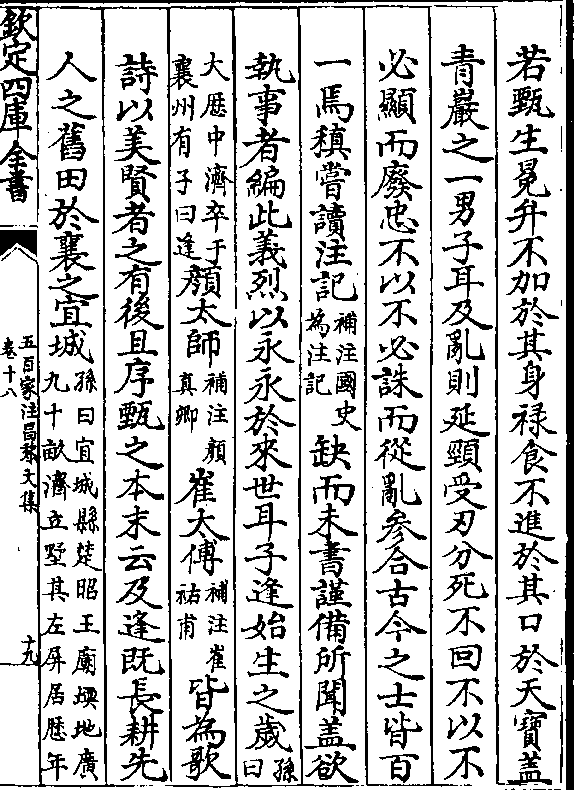 若甄生冕弁不加於其身禄食不進於其口於天寶蓋
青巖之一男子耳及亂則延頸受刃分死不回不以不
必顯而廢忠不以不必誅而從亂參合古今之士皆百
一焉稹嘗讀注記補注國史為注記缺而未書謹備所聞蓋欲
執事者編此義烈以永永於來世耳子逢始生之歲孫曰
大厯中濟卒于襄州有子曰逢顔太師補注顔真卿崔太傅補注崔祐甫皆為歌
詩以美賢者之有後且序甄之本末云及逢既長耕先
人之舊田於襄之宜城孫曰宜城縣楚昭王廟堧地廣九十畝濟立墅其左屏居厯年
欽定四庫全書
五百家注昌黎文集
卷十八
十九